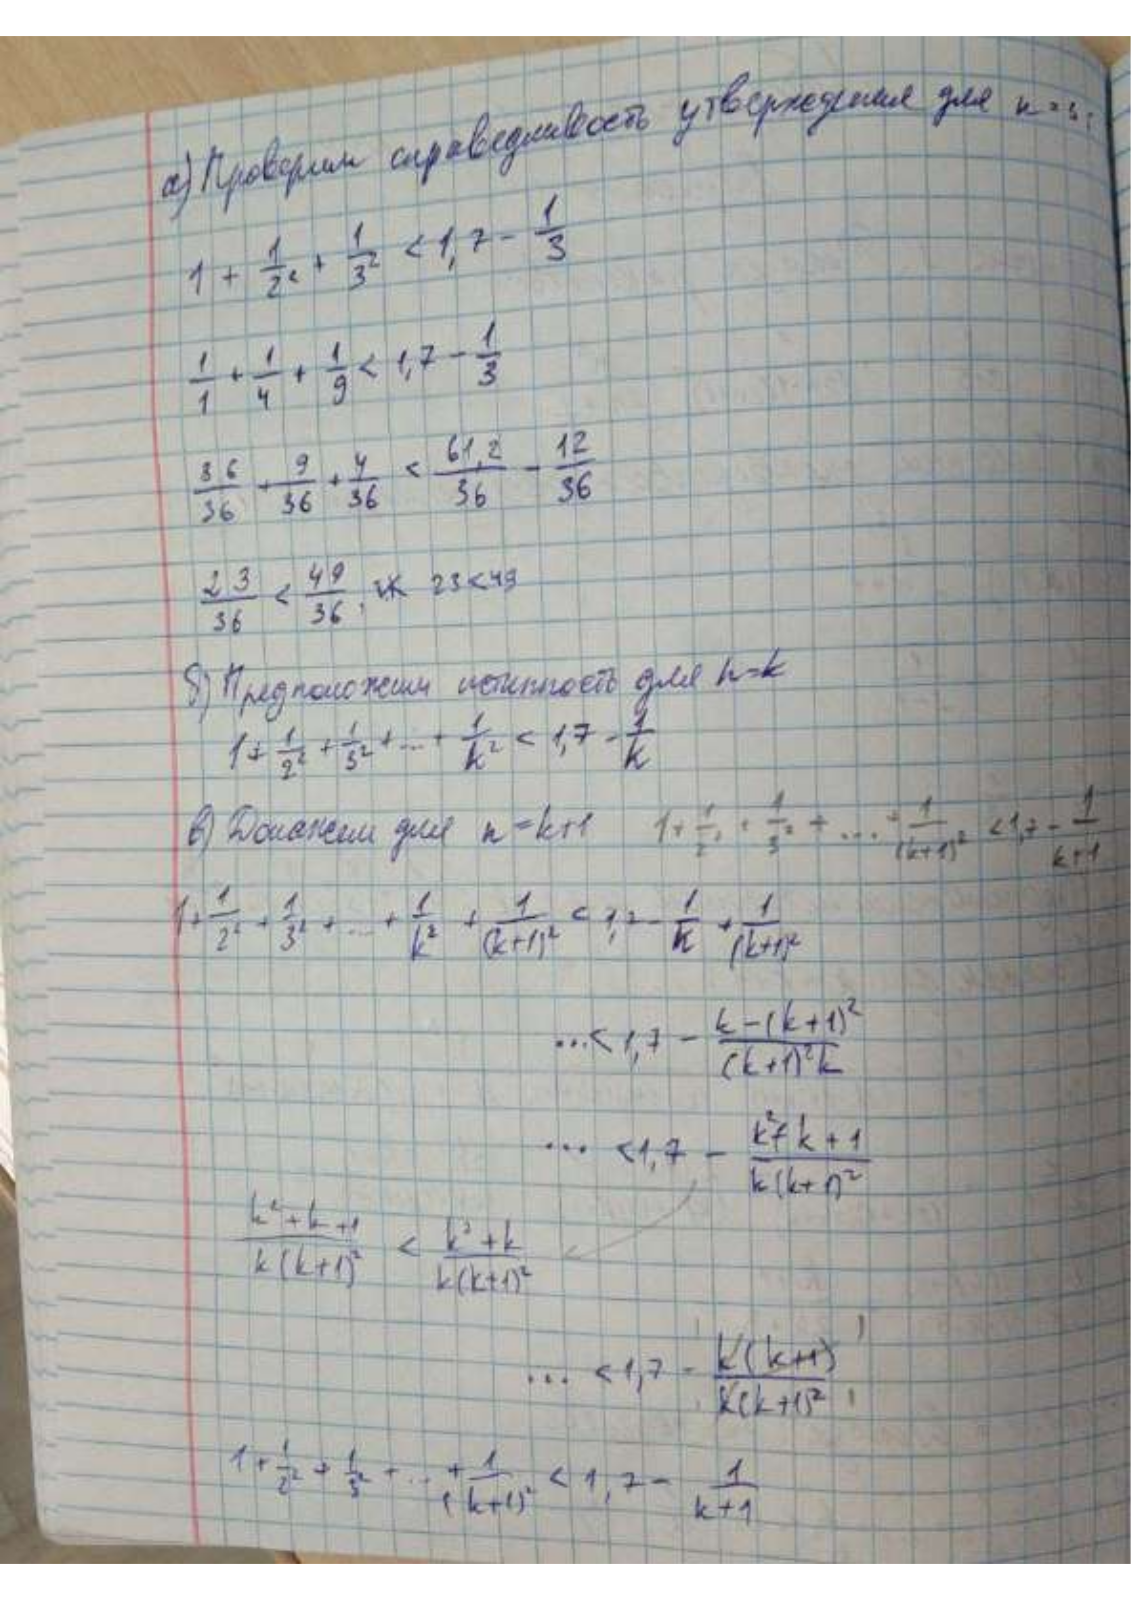 а) Проверим справедливость утверждения для n=3,
1 + 1/2² + 1/3² < 1,7 - 1/3
1/1 + 1/4 + 1/9 < 1,7 - 1/3
36/36 + 9/36 + 4/36 < 61,2/36 - 12/36
23/36 < 49/36, тк 23<49
б) Предположим истинность для n=k
1 + 1/2² + 1/3² + ... + 1/k² < 1,7 - 1/k
в) Докажем для n=k+1 1 + 1/2² + 1/3² + ... + 1/(k+1)² < 1,7 - 1/k+1
1 + 1/2² + 1/3² + ... + 1/k² + 1/(k+1)² < 1,7 - 1/k + 1/(k+1)²
...< 1,7 - k-(k+1)²/(k+1)²k
... <1,7 - k²+k+1/k(k+1)²
k²+k+1/k(k+1)² < k²+k/k(k+1)²
... <1,7 - k(k+1)/k(k+1)²
1 + 1/2² + 1/3² + ... + 1/(k+1)² < 1,7 - 1/k+1